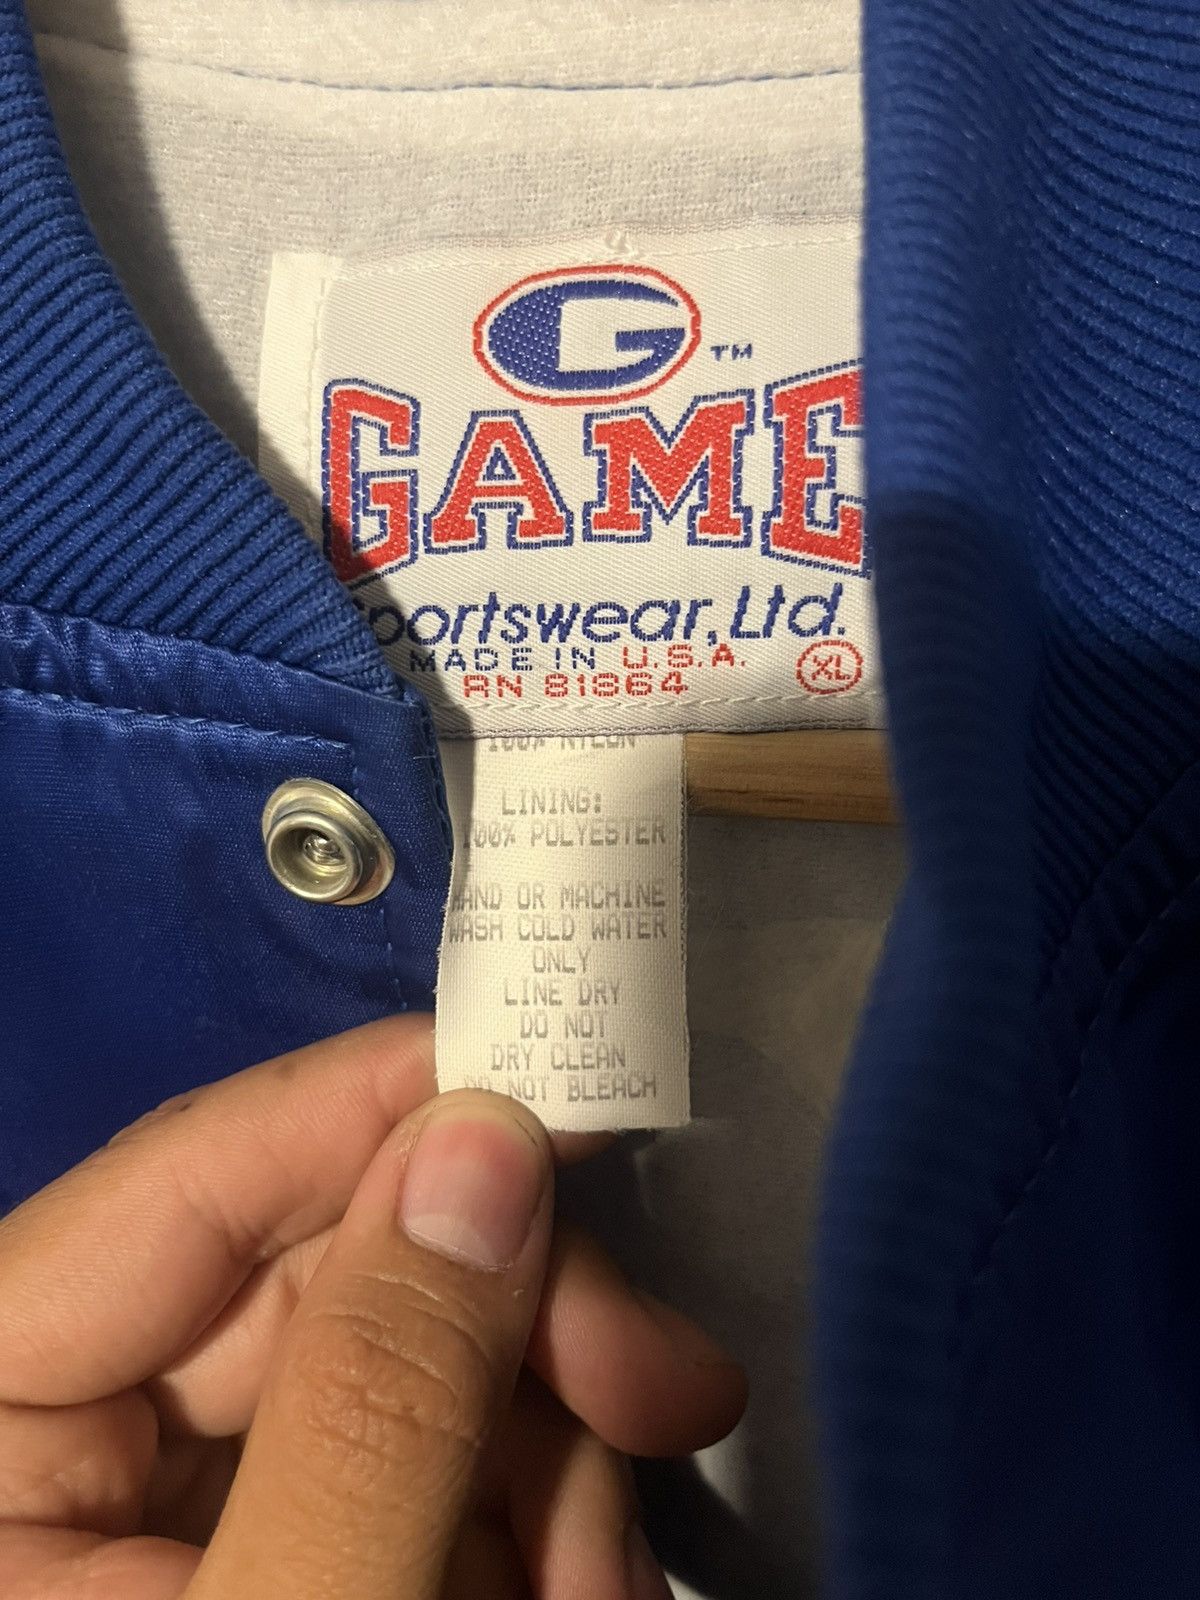 G ™
GAME
Sportswear, Ltd.
MADE IN U.S.A.
RN 81864 XL
100% NYLON
LINING:
100% POLYESTER
HAND OR MACHINE
WASH COLD WATER
ONLY
LINE DRY
DO NOT
DRY CLEAN
DO NOT BLEACH